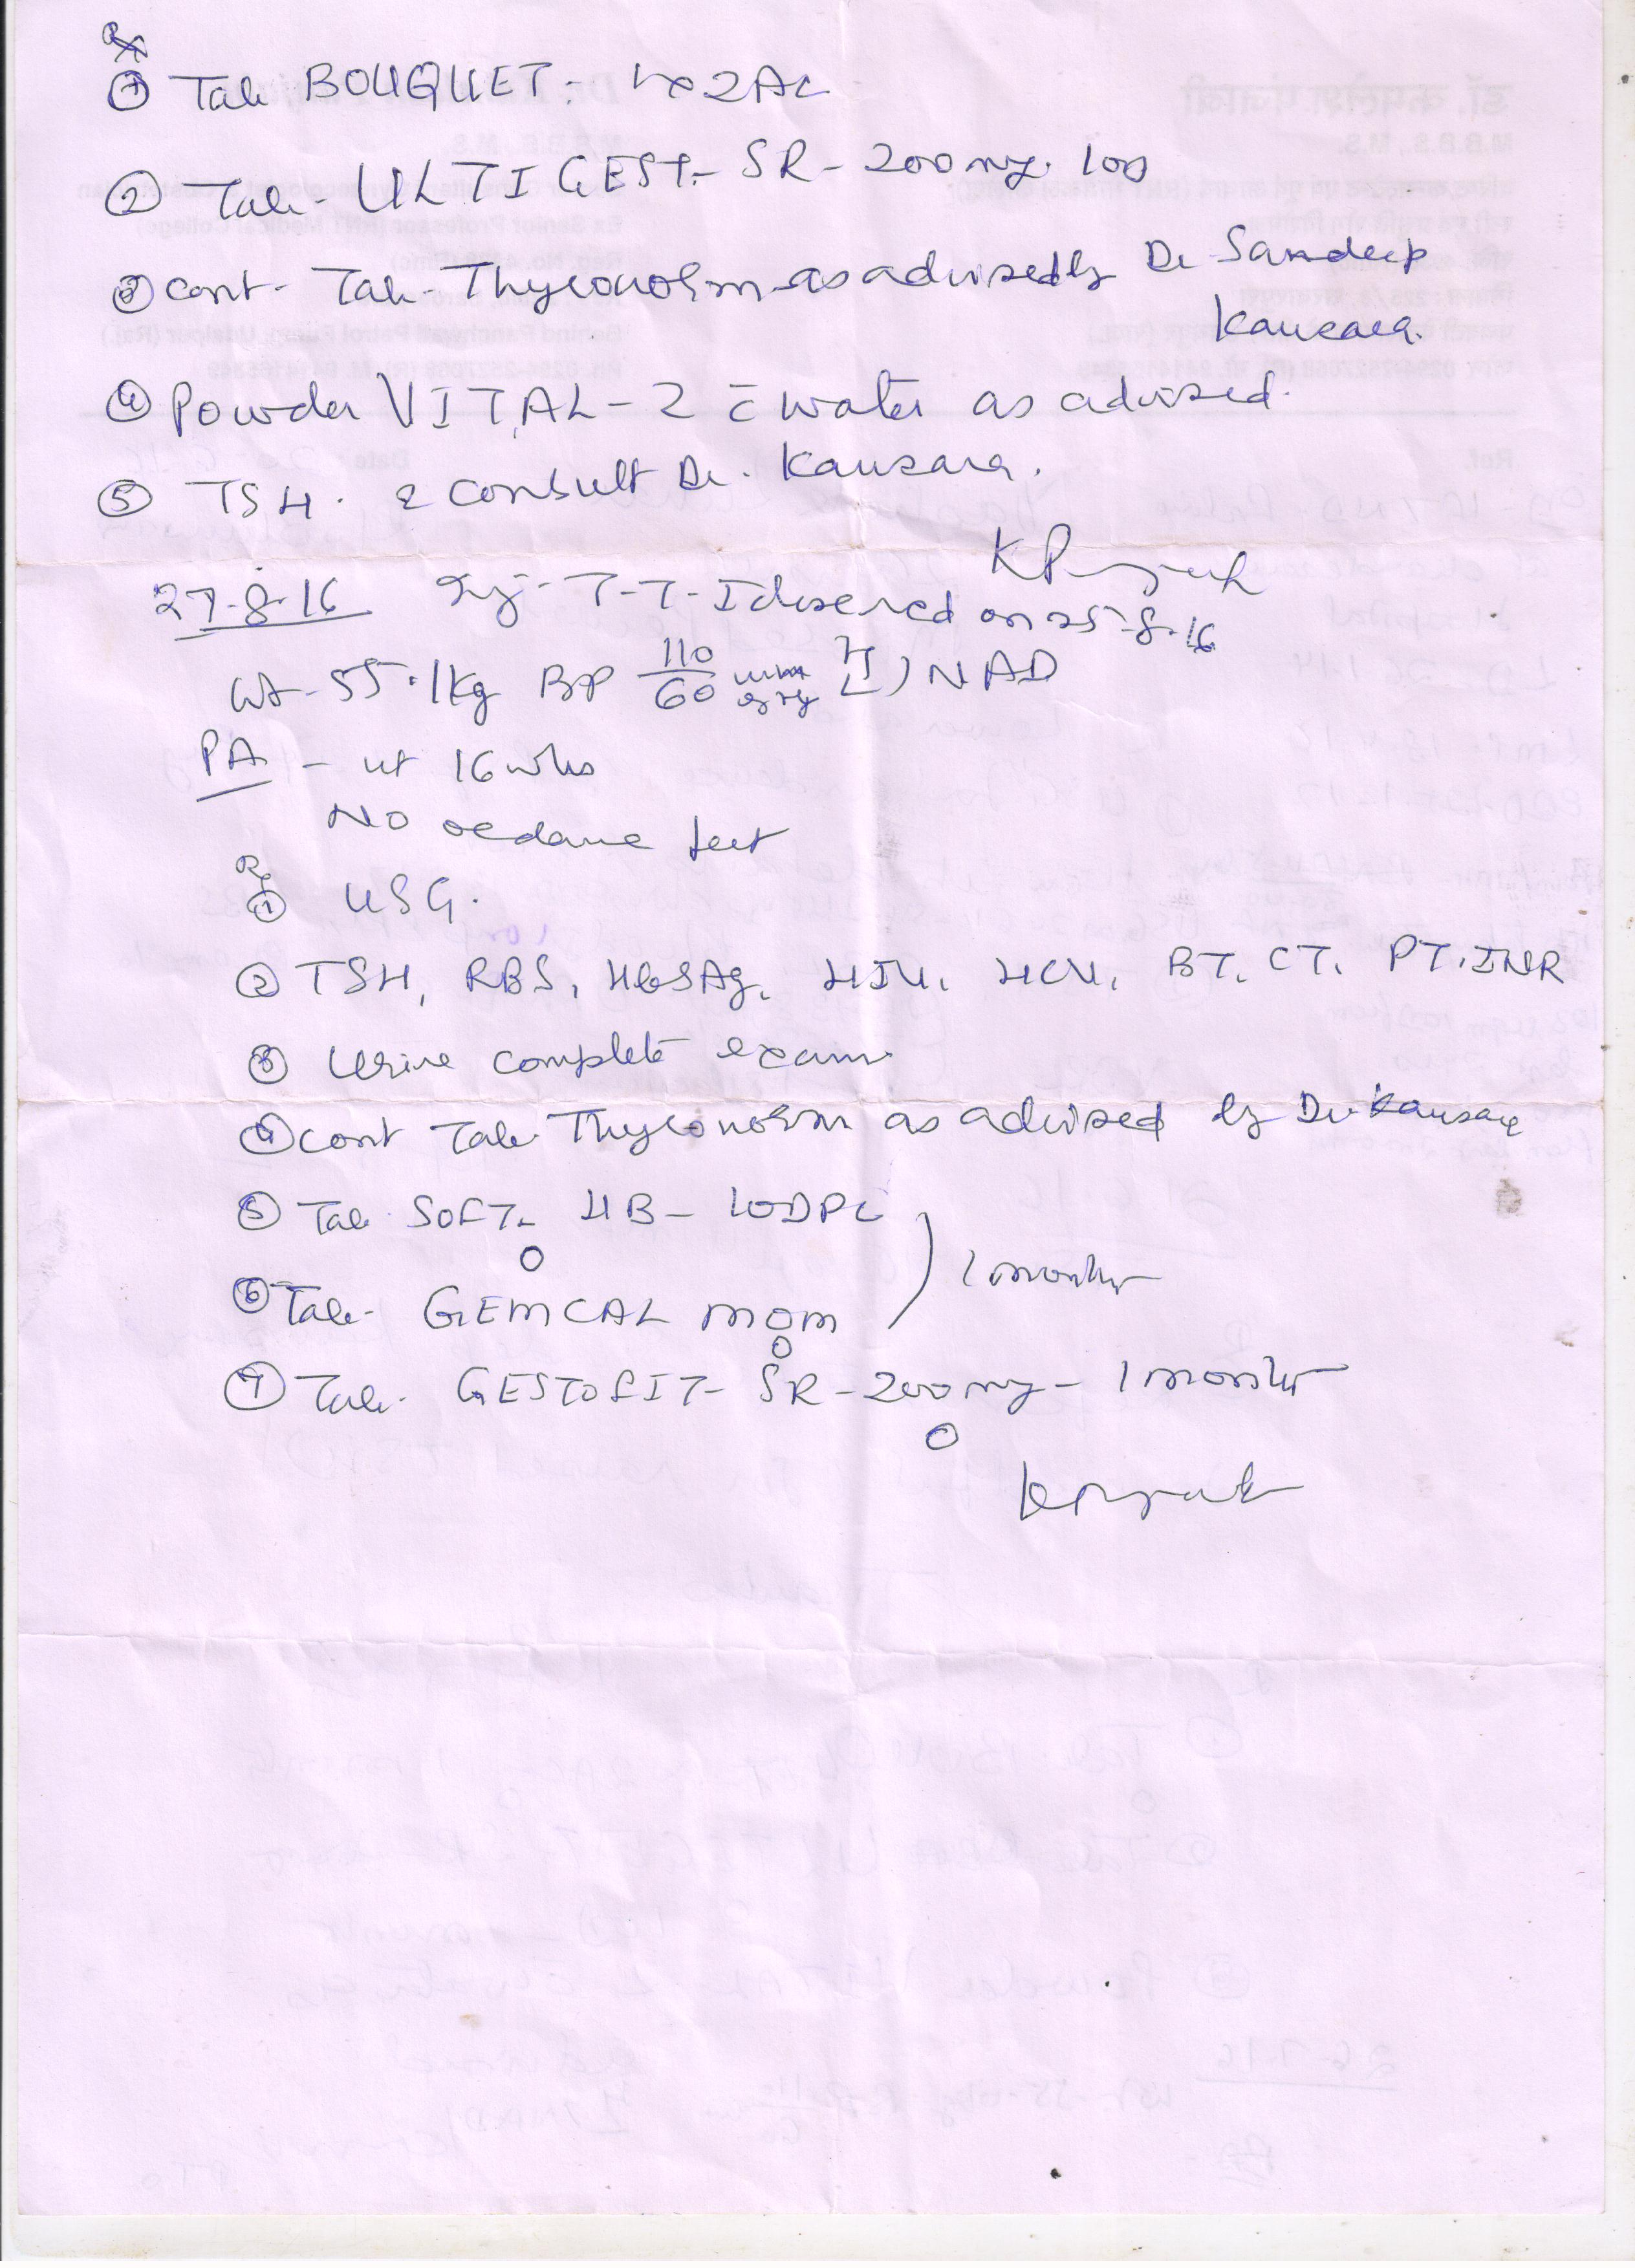 Rx
① Tab BOUQUET - 1x2AC
② Tab - ULTIGEST - SR - 200mg. 1OD
③ Cont - Tab - Thyronorm as advised by Dr Sandeep
Kansara.
④ Powder VITAL - 2 c̄ water as advised.
⑤ TSH. & consult Dr. Kansara.
27-8-16 Inj - T-T - I on 25-8-16
Wt - 55.1kg BP 110/60 mm of Hg H/L ) NAD
PA - ut 16 wks
No oedema feet
Rx
① USG.
② TSH, RBS, HbSAg, HIV, HCV, BT, CT, PT.INR
③ Urine complete exam
④ cont Tab Thyronorm as advised by Dr Kansara
⑤ Tab SOFT - HB - 1ODPC
⑥ Tab - GEMCAL MOM ) 1 month
⑦ Tab - GESTOFIT - SR - 200mg - 1 month